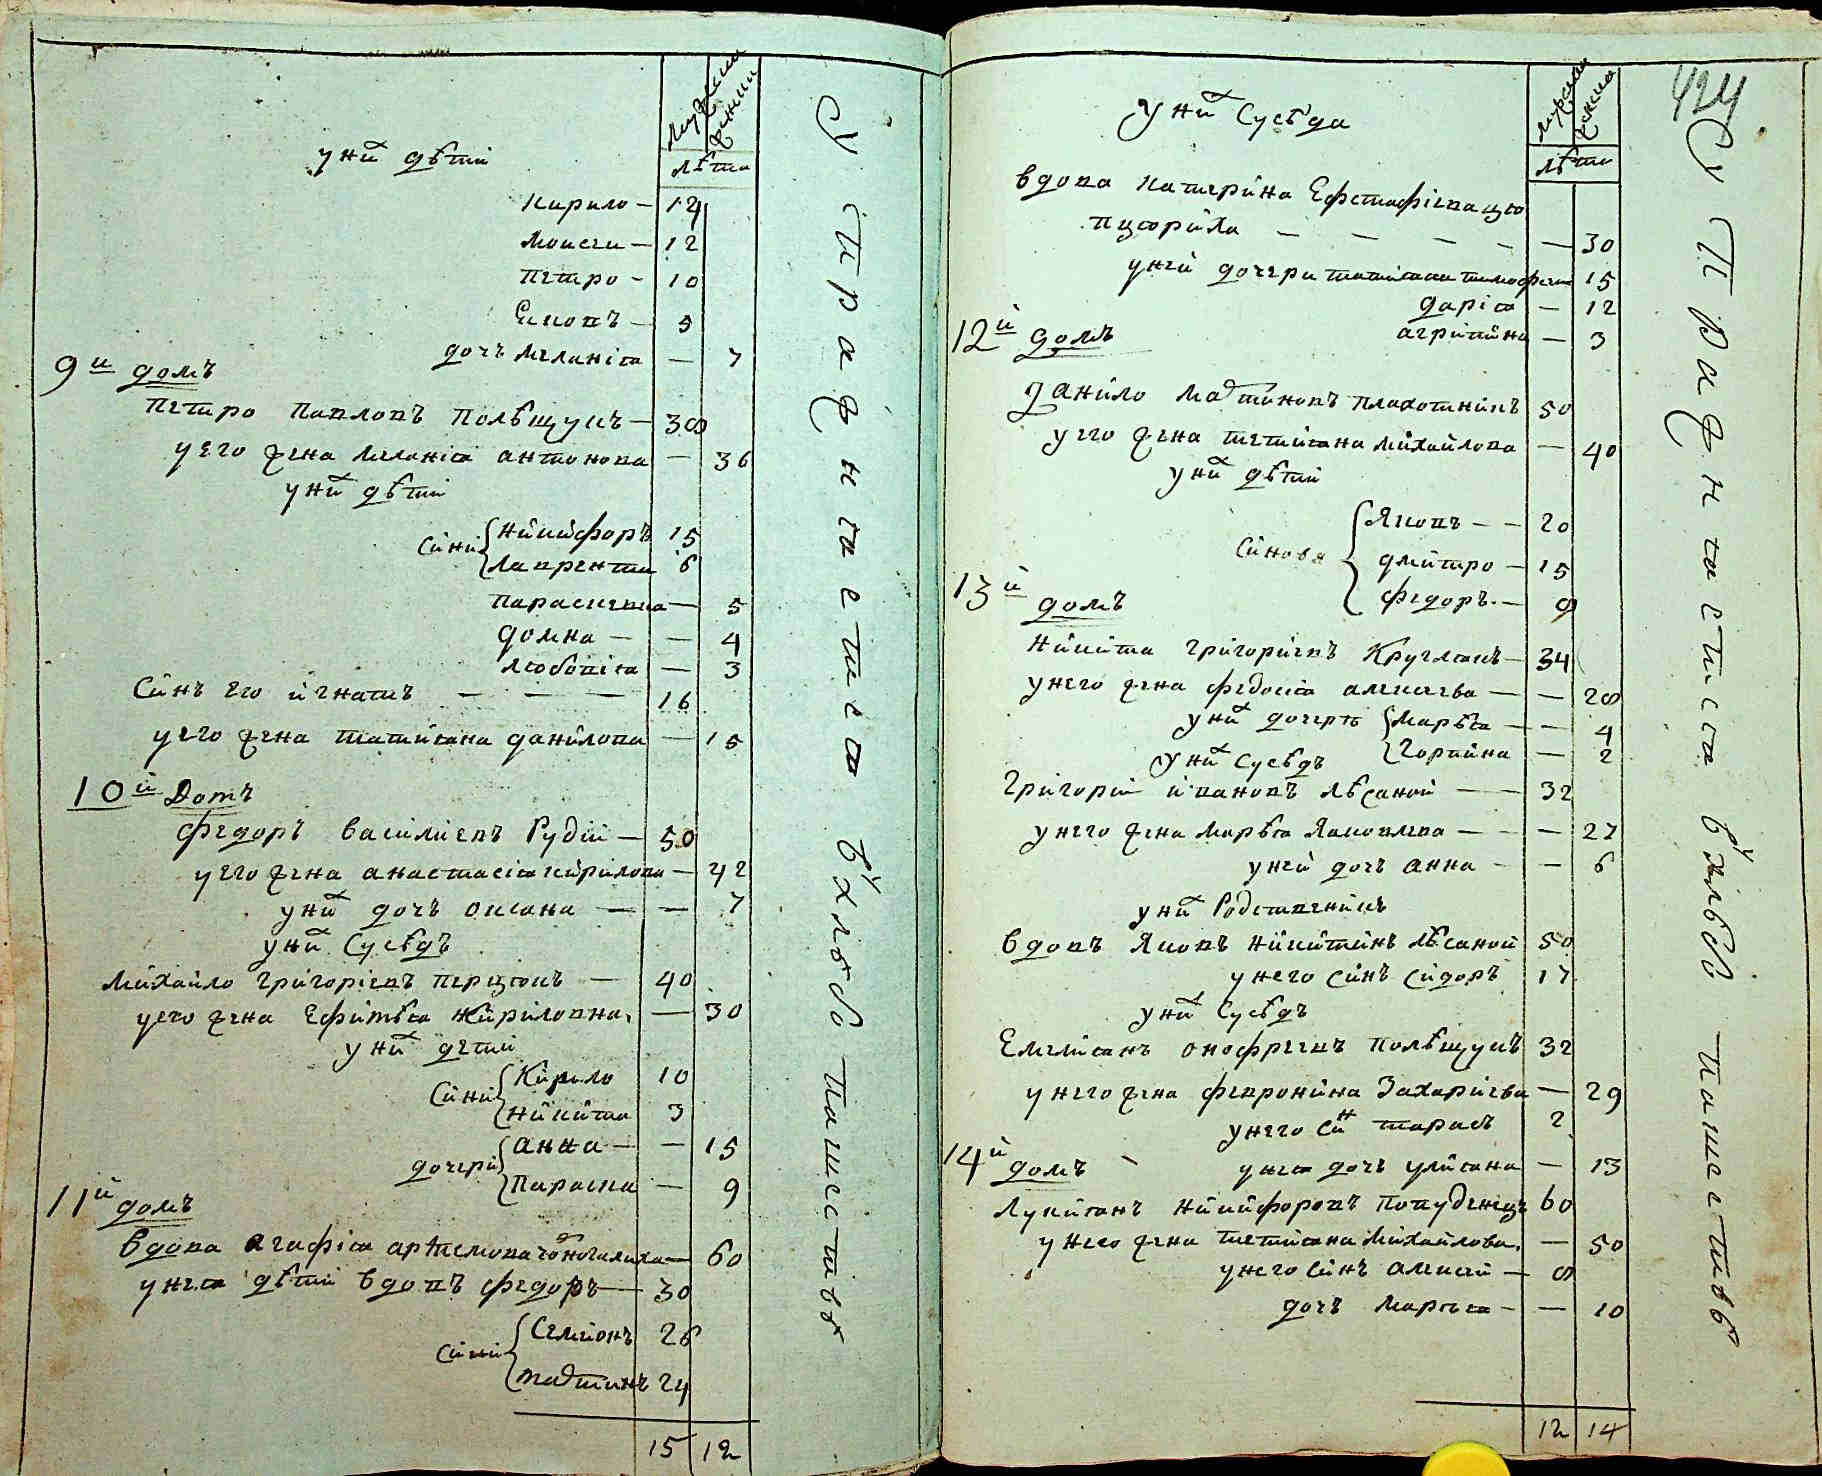 мужеска женска
лѣта
у них дѣтий
Кирило — 14
Моисеи — 12
Петро — 10
Яковъ — 5
дочъ Меланія — 7
9й домъ
Петро Павловъ Полѣщукъ — 38
у его жена Меланія Антонова — 36
у них дѣтий
Сини Никифоръ 15
Лаврентий 6
Параскевия — 5
Домна — 4
Любовия — 3
Синъ его Игнатъ — — — 16
у его жена Татияна Данилова — 15
10й Домъ
Федоръ Василиевъ Рудій — 50
у его жена Анастасія Кирилова — 42
у них дочъ Оксана — — 7
у них Сусѣдъ
Михайло Григоріевъ Перцюнъ — 40
у его жена Ефимѣя Кириловна — 30
у них детий
Сини Кирило 10
Никита 3
дочери Анна — 15
Параска — 9
11й домъ
Вдова Агафія Артемова — 60
у нея дѣтий вдовъ Федоръ — 30
Сини Семионъ 26
Мартинъ 24
15 12
у пражняется в хлѣбо пашествѣ
424
мужеска женска
лѣта
у них Сусѣда
Вдова Катерина Ефстафіева
— — — — — 30
у ней дочери Татияна 15
Дарія — 12
Агрипина — 3
12й домъ
Данило Мартиновъ Плахотнинъ 50
у его жена Тетияна Михайлова — 40
у них дѣтий
Синовя Яковъ — — 20
Дмитро — 15
Федоръ — 9
13й домъ
Никита Григориевъ Круглякъ — 34
у него жена Федосія Алексеева — — 28
у них дочери Марѣя — — 4
Горпина — 2
у них Сусѣдъ
Григорий Ивановъ Лѣсаной — — 32
у него жена Марѣя Яковлева — — — 27
у ней дочъ Анна — — 6
у них Родственникъ
Вдовъ Яковъ Никитинъ Лѣсаной 50
у него Синъ Сидоръ 17
у них Сусѣдъ
Емелиянъ Онофреевъ Полѣщукъ 32
у него жена Февронина Захариева — 29
у него Синъ Тарасъ 2
у нея дочъ Улияна — 13
14й домъ
Лукиянъ Никифоровъ 60
у него жена Тетияна Михайлова — 50
у него Синъ Алексий — 8
дочъ Марѣя — — 10
12 14
у пражняется в хлѣбо пашествѣ